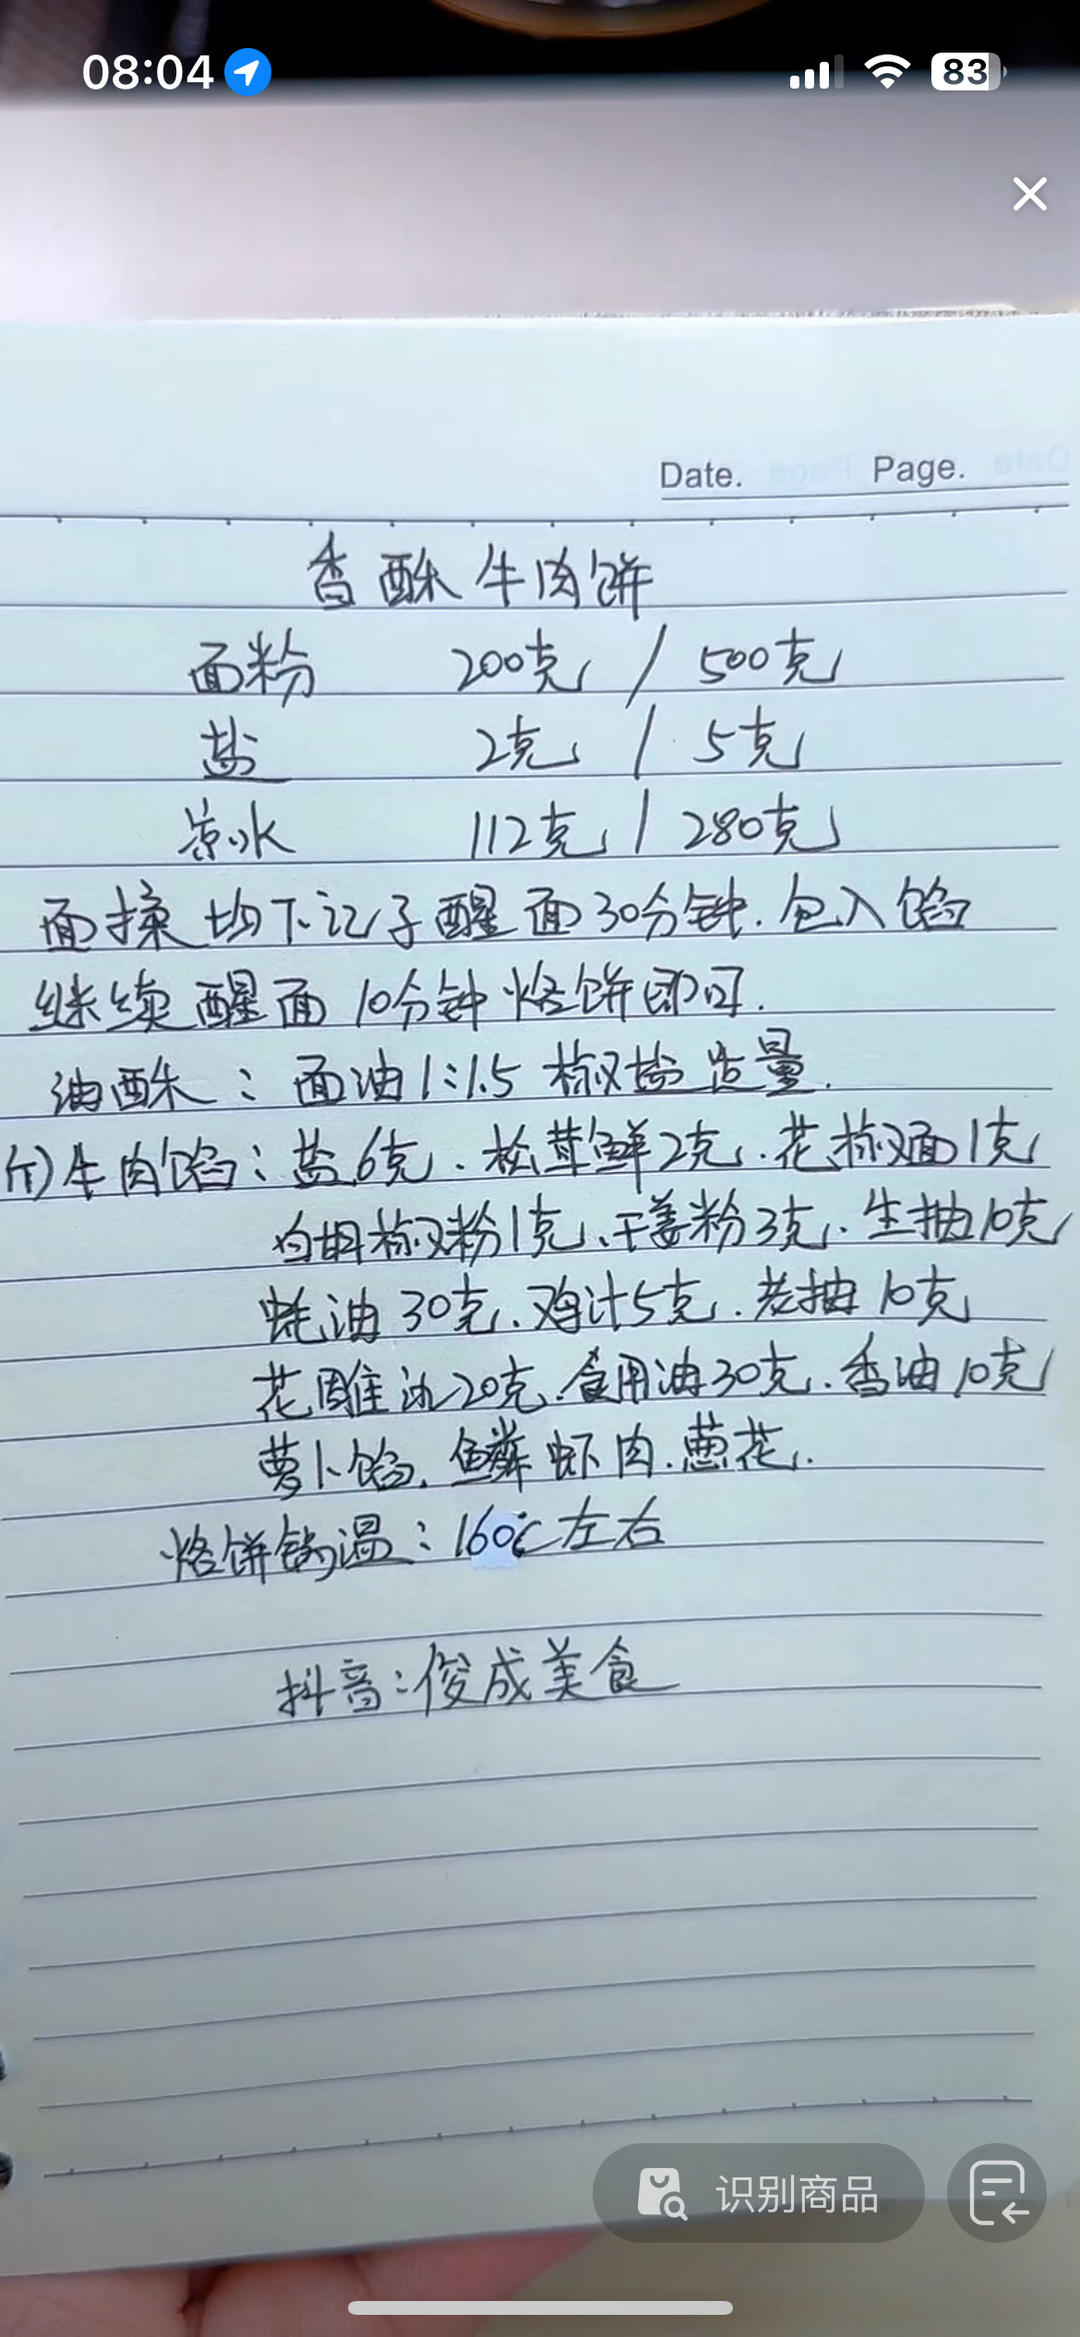 08:04
83
Date. Page.
香酥牛肉饼
面粉 200克 / 500克
盐 2克 / 5克
凉水 112克 / 280克
面揉均下记子醒面30分钟.包入馅
继续醒面10分钟烙饼即可.
油酥：面油1:1.5 椒盐适量.
斤)牛肉馅：盐6克、松茸鲜2克、花椒面1克
白胡椒粉1克、干姜粉3克、生抽10克
蚝油30克、鸡汁5克、老抽10克
花雕酒20克、食用油30克、香油10克
萝卜馅. 虾肉.葱花.
烙饼锅温：160℃左右
抖音：俊成美食
识别商品